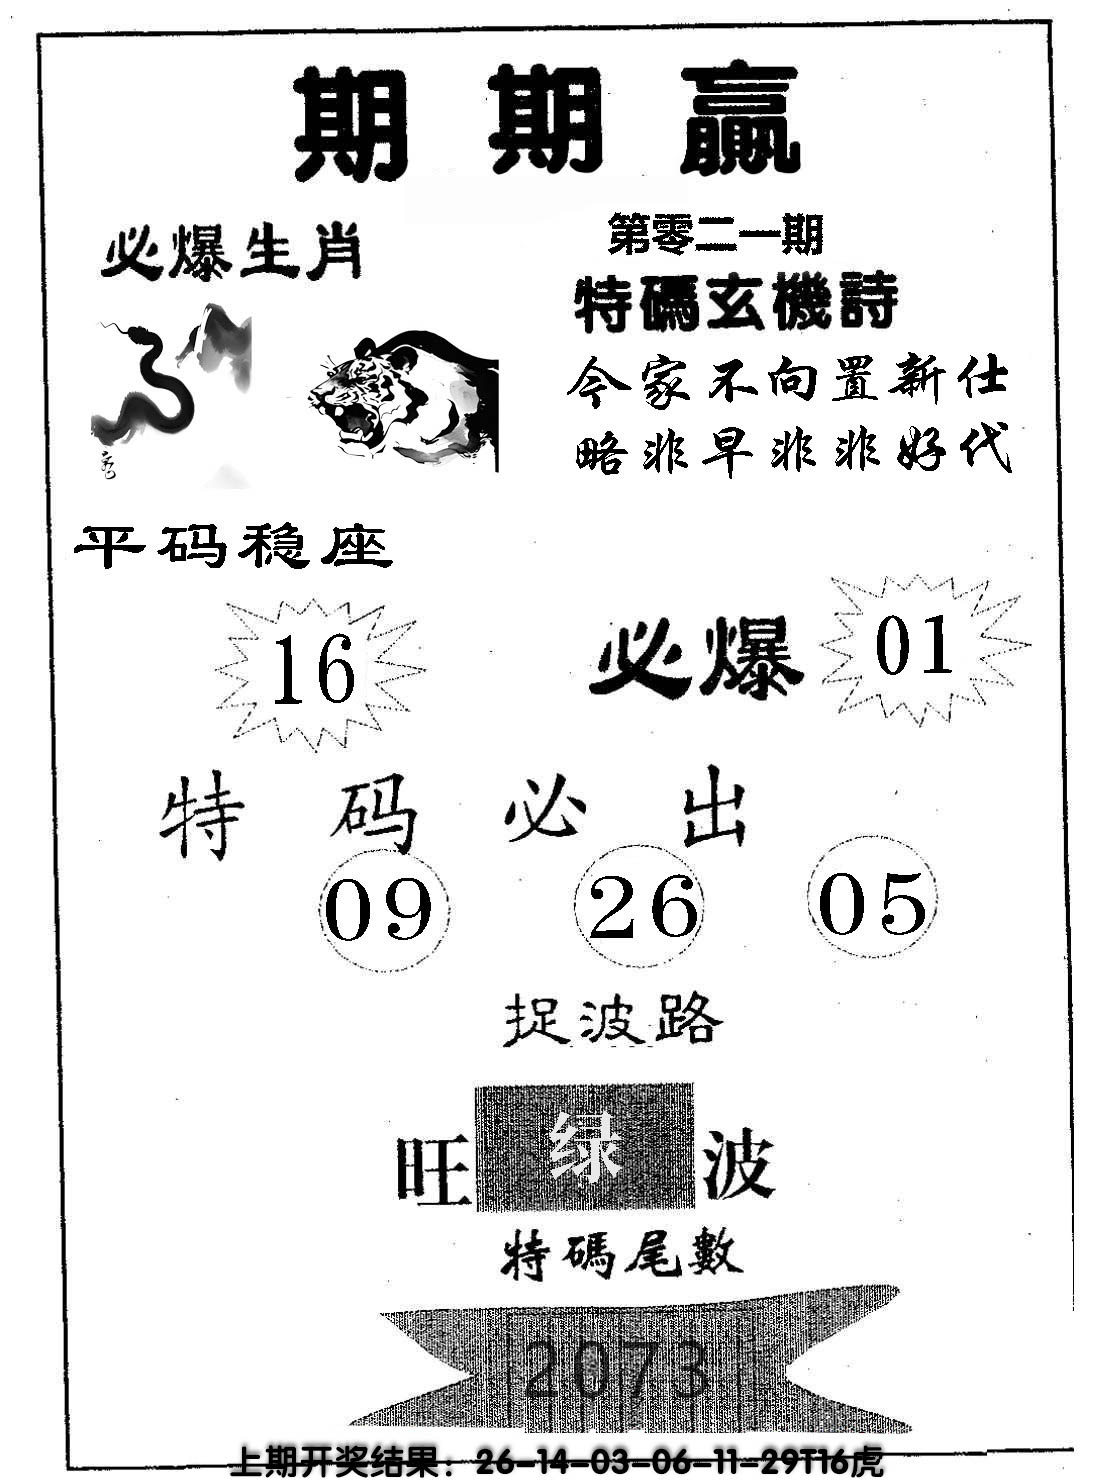 期期贏
第零二一期
必爆生肖
特碼玄機詩
今家不向置新仕
略非早非非好代
平码稳座
16
必爆 01
特码必出
09 26 05
捉波路
旺绿波
特碼尾數
2073
上期开奖结果：26-14-03-06-11-29T16虎